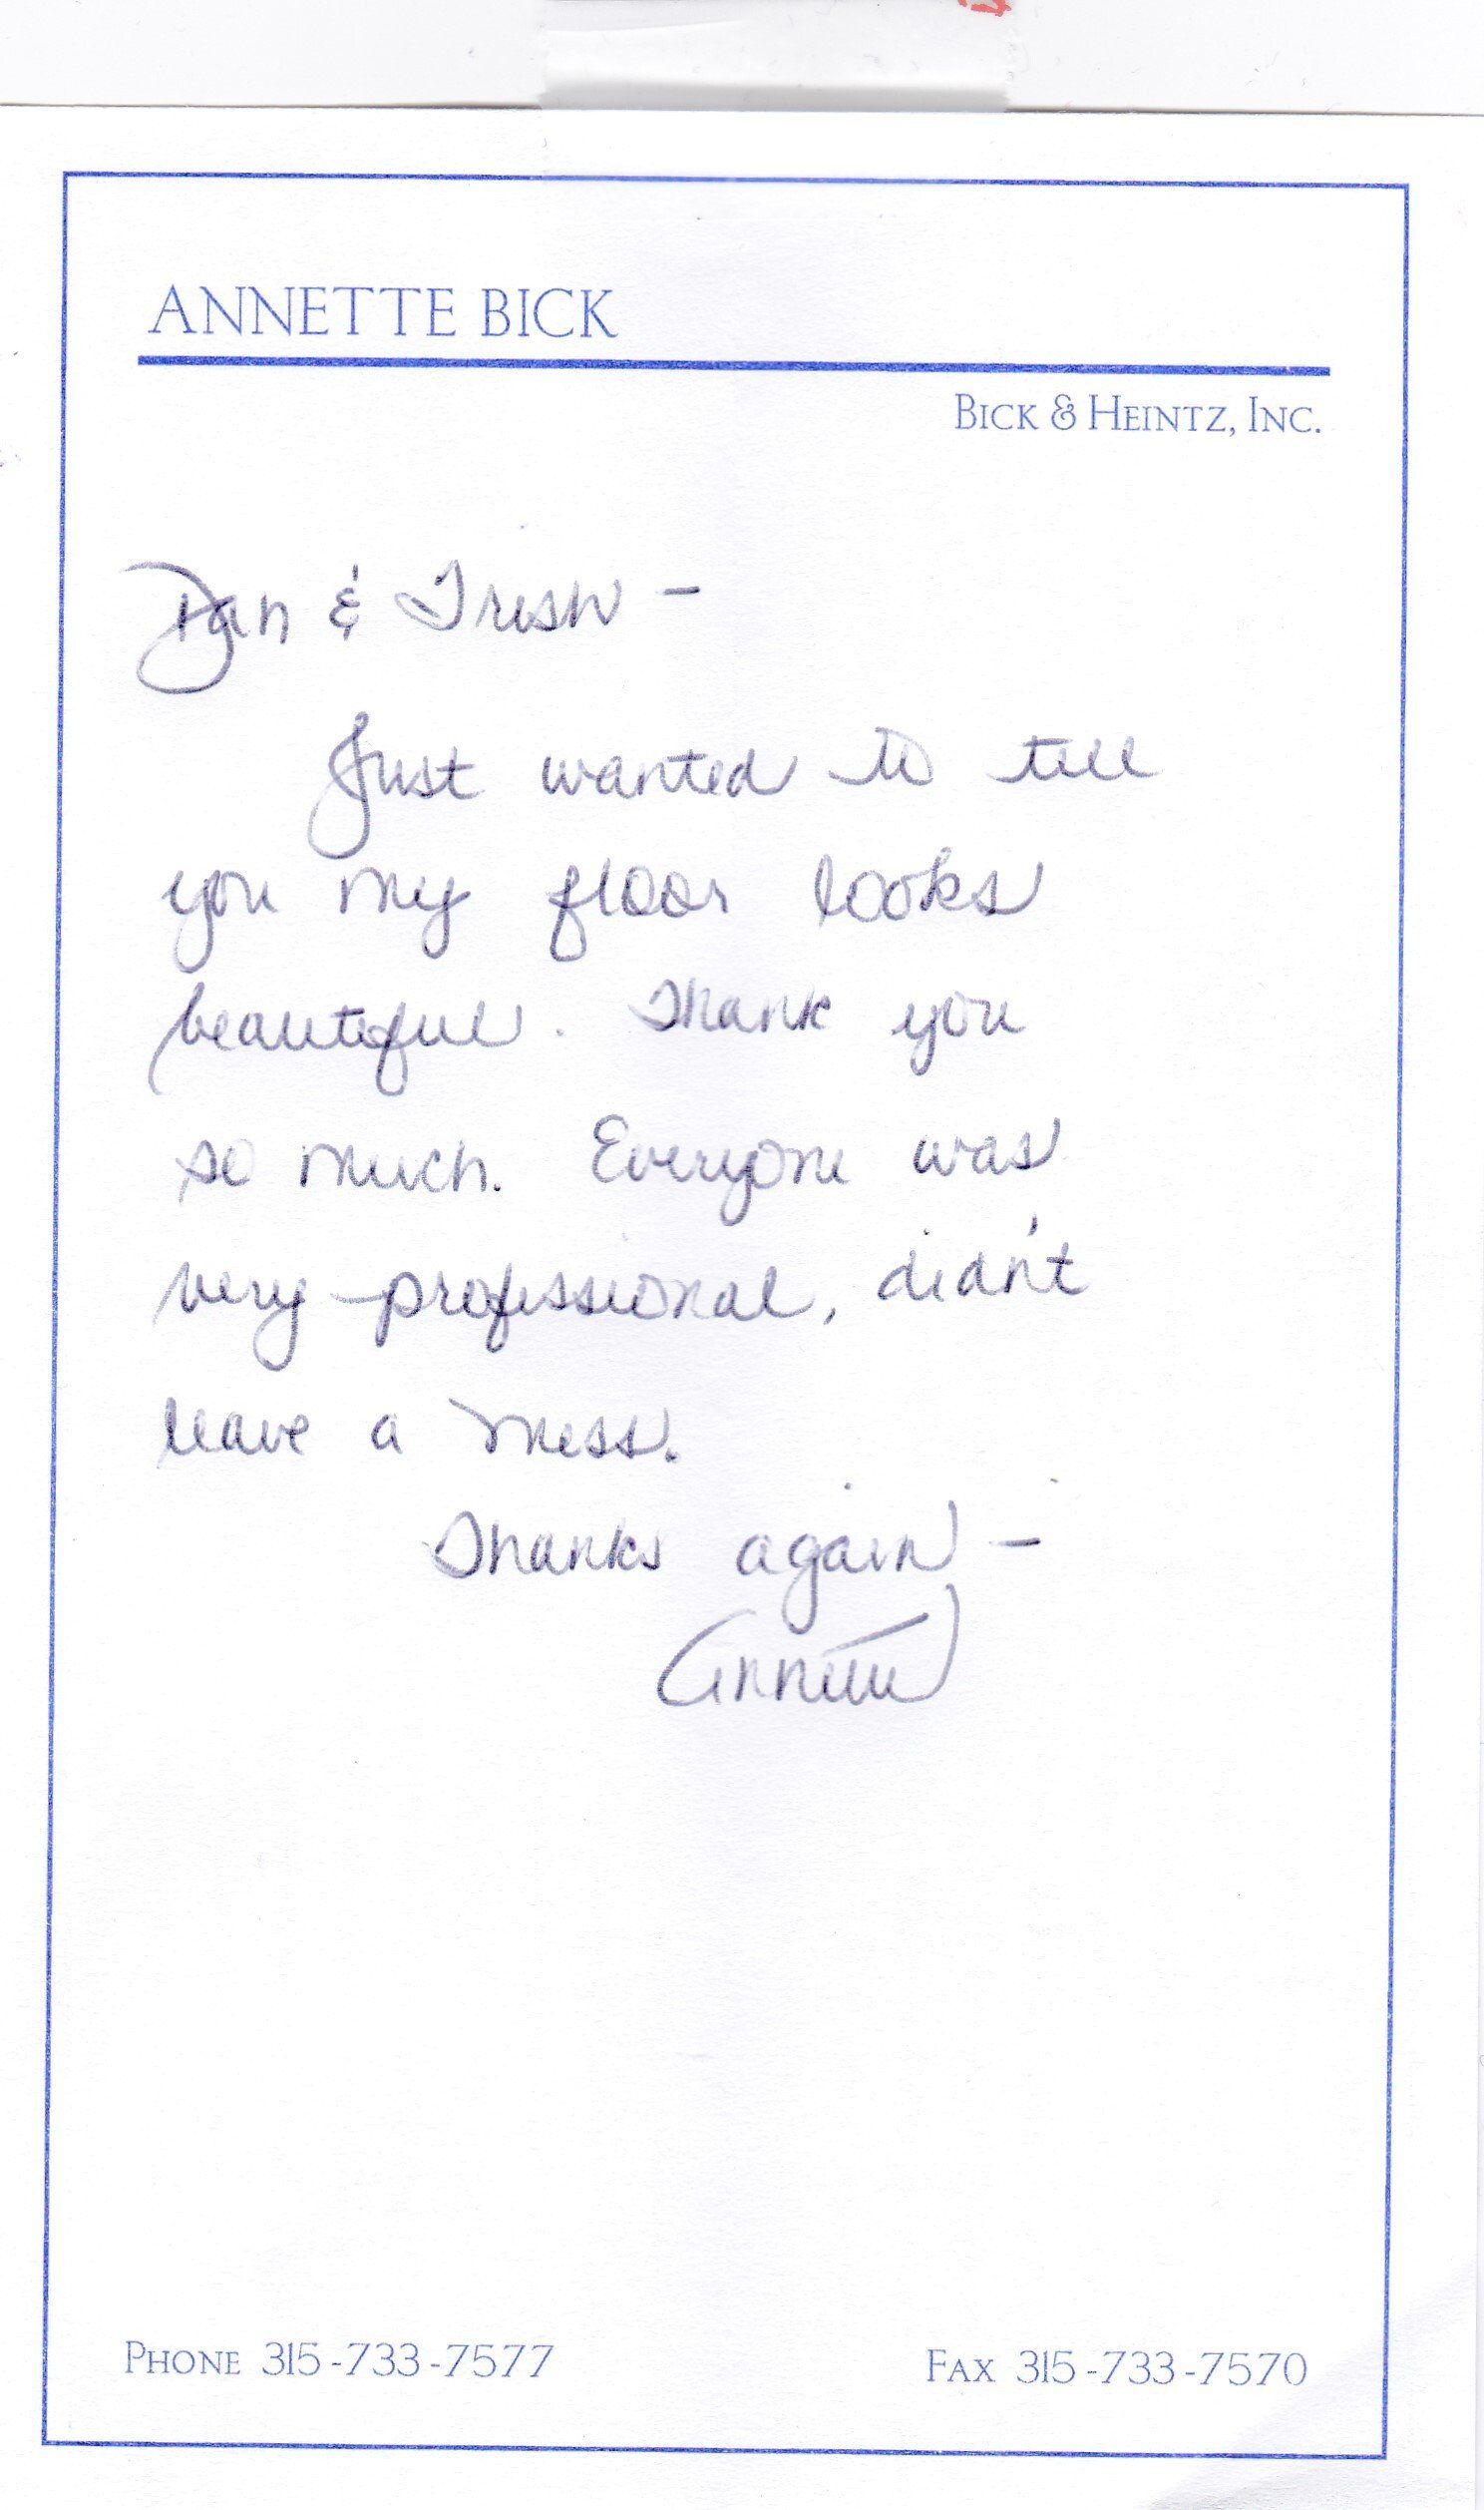 ANNETTE BICK
BICK & HEINTZ, INC.
Dan & Trish -
Just wanted to tell
you my floor looks
beautiful. Thank you
so much. Everyone was
very professional, didn't
leave a mess.
Thanks again -
Annette
PHONE 315-733-7577
FAX 315-733-7570